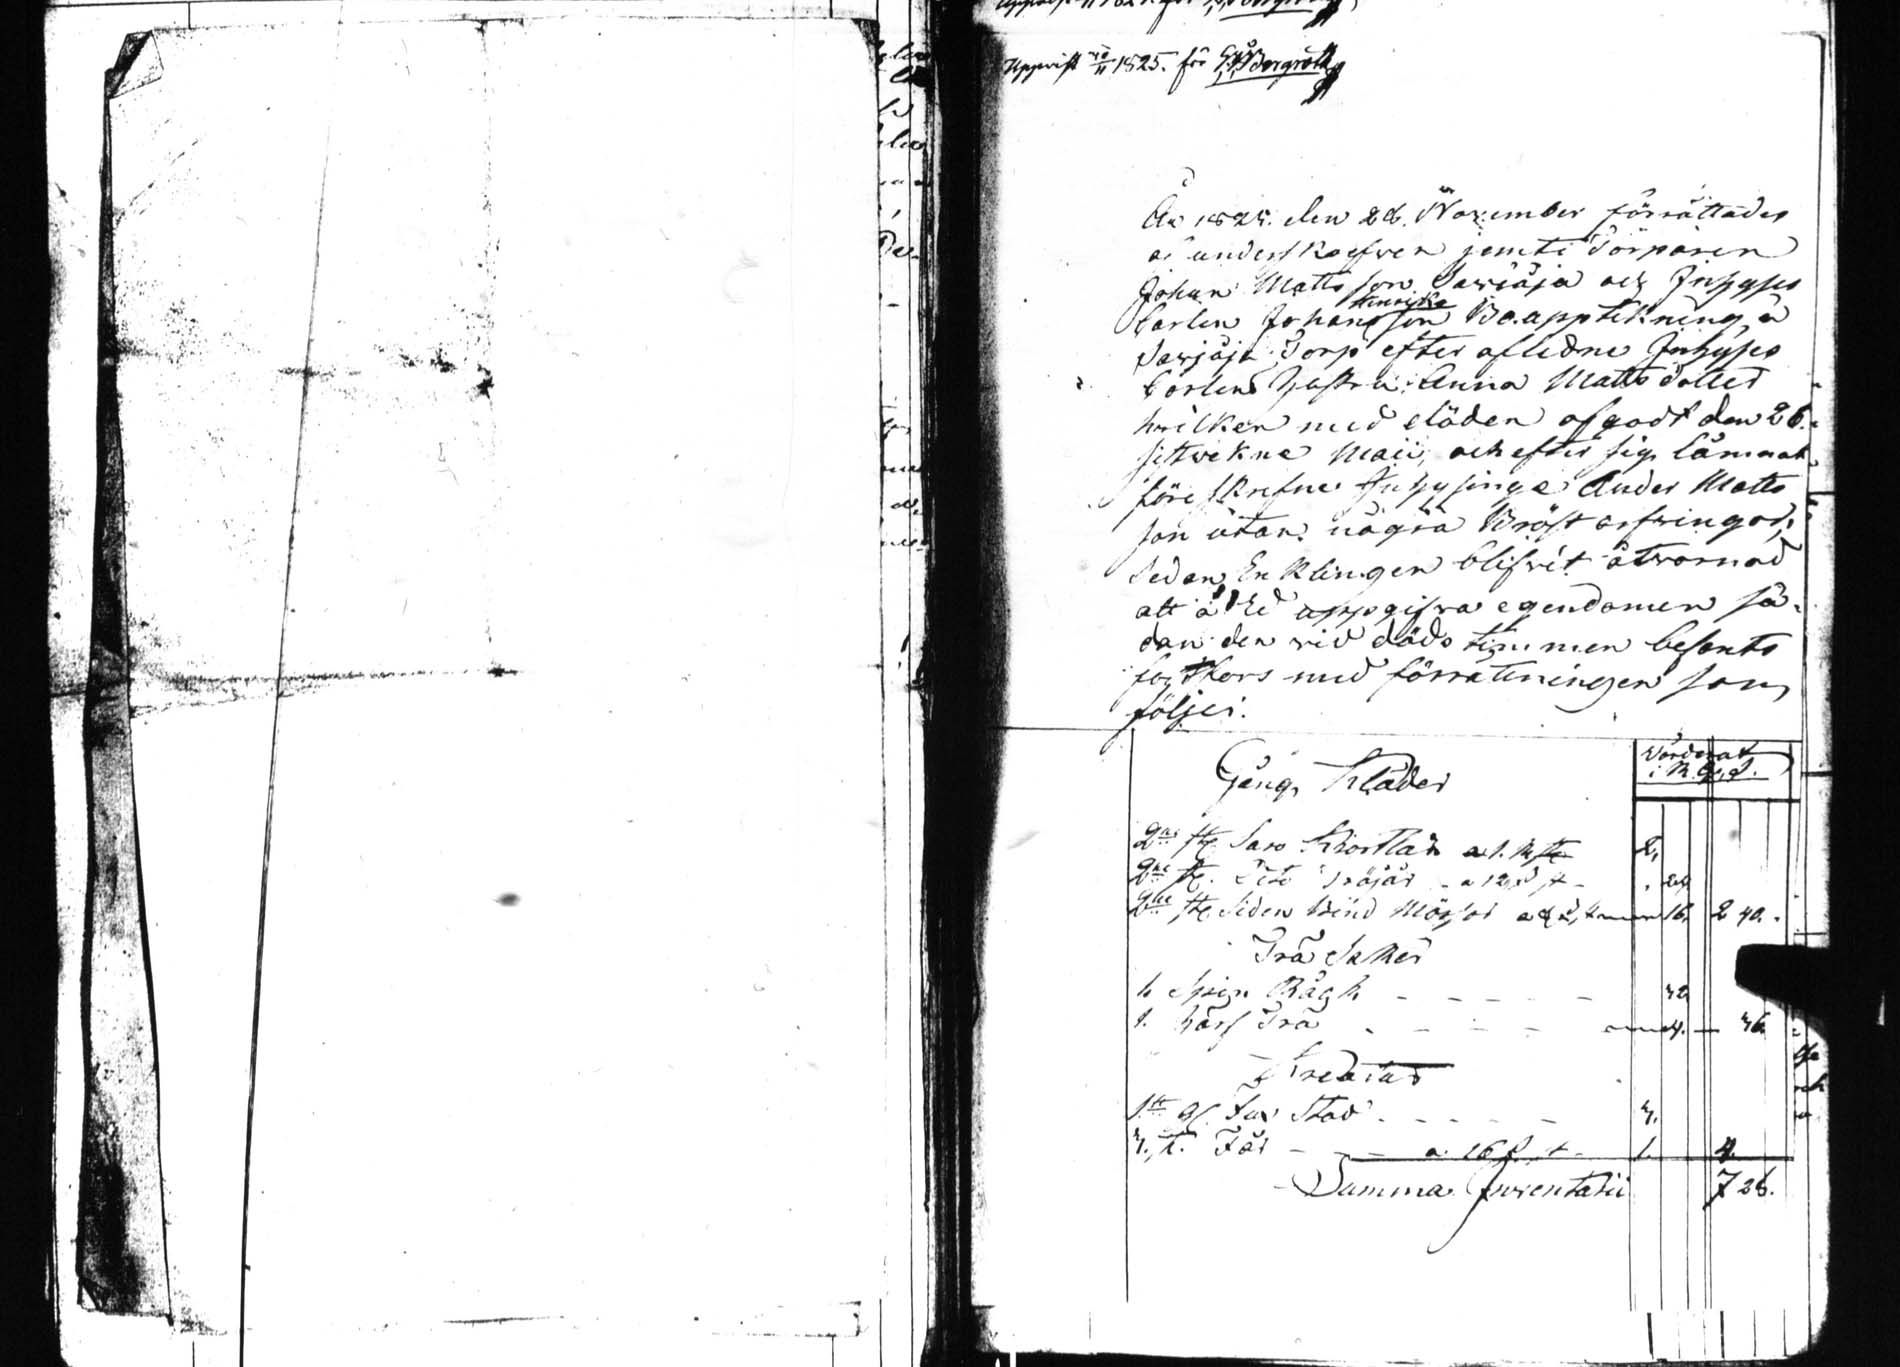 Uppvist 10/11 1825. för Bergroth
År 1825. den 26. November förrättades
af underskrefven jemte Torparen
Johan Mattsson Sarjäja och Inhyses
Karlen Johansson Henrik Bo.apptekning å
Sarjäja Torp efter aflidne Inhyses
Karlens Hustru Anna Matts dotter
hvilken med döden afgådt den 26.
sistvekne Maii, och efter sig lämnat
föreskrefne Inhysinge Ander Matts
son utan några Bröst arfvingar,
Sedan Enklingen blifvit åtvarnad
att å Ed uppgifva egendomen så-
dan den vid döds timmen befants
med förrattningen som
följer.
Värderat
i R. S.
Gång Kläder
2ne st. Kiortlar a 1. R st 2,
2ne st. Dito Tröjor - a 12 st - 24
2ne st. Siden Bind Mössor a 16. 2 40.
Trä Saker
1. Spin Råck - - - - - 32
1. Trä - - - - - 4. 36.
Kreatur
1st Stod - - - - - 3.
3. st. Får - - - a. 16 st - 1. 4.
Summa Inventarii 7 26.